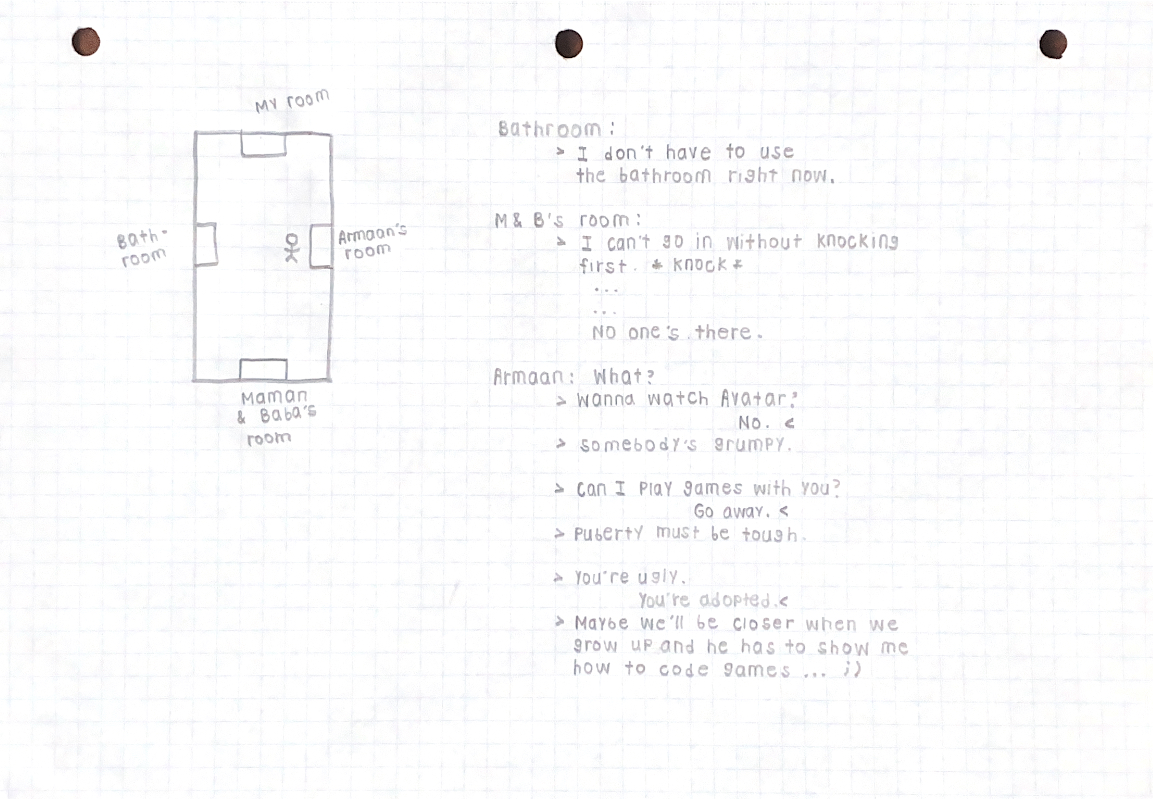 My room
Bath-
room
Armaan's
room
Maman
& Baba's
room
Bathroom:
> I don't have to use
the bathroom right now.
M & B's room:
> I can't go in without knocking
first. * knock *
...
...
No one's there.
Armaan: What?
> Wanna watch Avatar?
No. <
> Somebody's grumpy.
> Can I play games with you?
Go away. <
> Puberty must be tough.
> You're ugly.
You're adopted. <
> Maybe we'll be closer when we
grow up and he has to show me
how to code games ... ;)